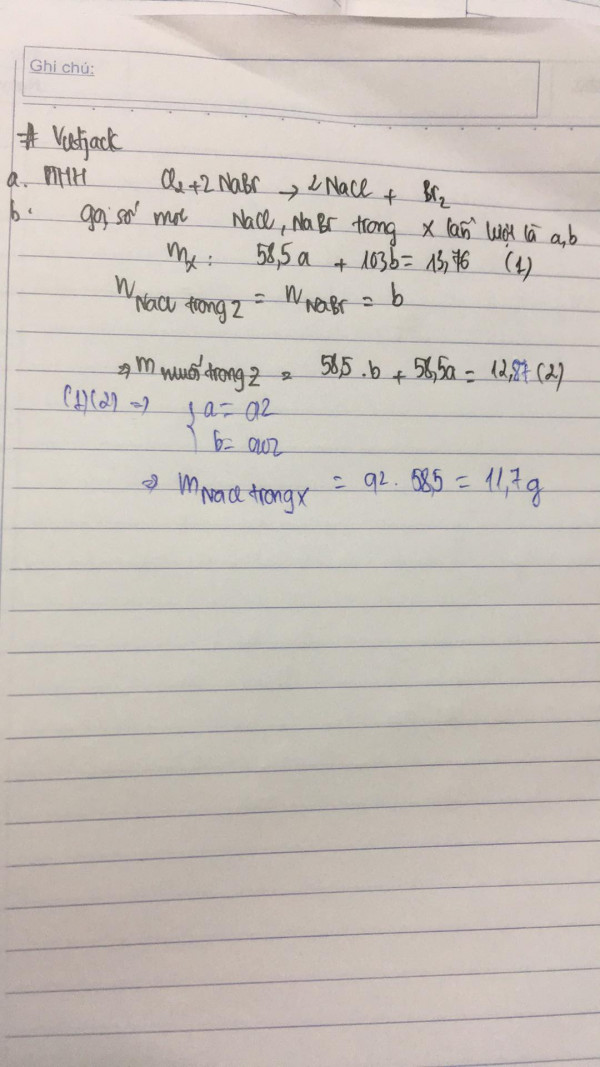 Ghi chú:
# Vietjack
a. PTHH Cl₂ + 2NaBr → 2NaCl + Br₂
b. gọi số mol NaCl, NaBr trong X lần lượt là a, b
mₓ: 58,5a + 103b = 13,76 (1)
n NaCl trong Z = n NaBr = b
⇒ m muối trong Z = 58,5 . b + 58,5a = 12,87 (2)
(1)(2) ⇒ { a = 0,2
b = 0,02
⇒ m NaCl trong X = 0,2 . 58,5 = 11,7g